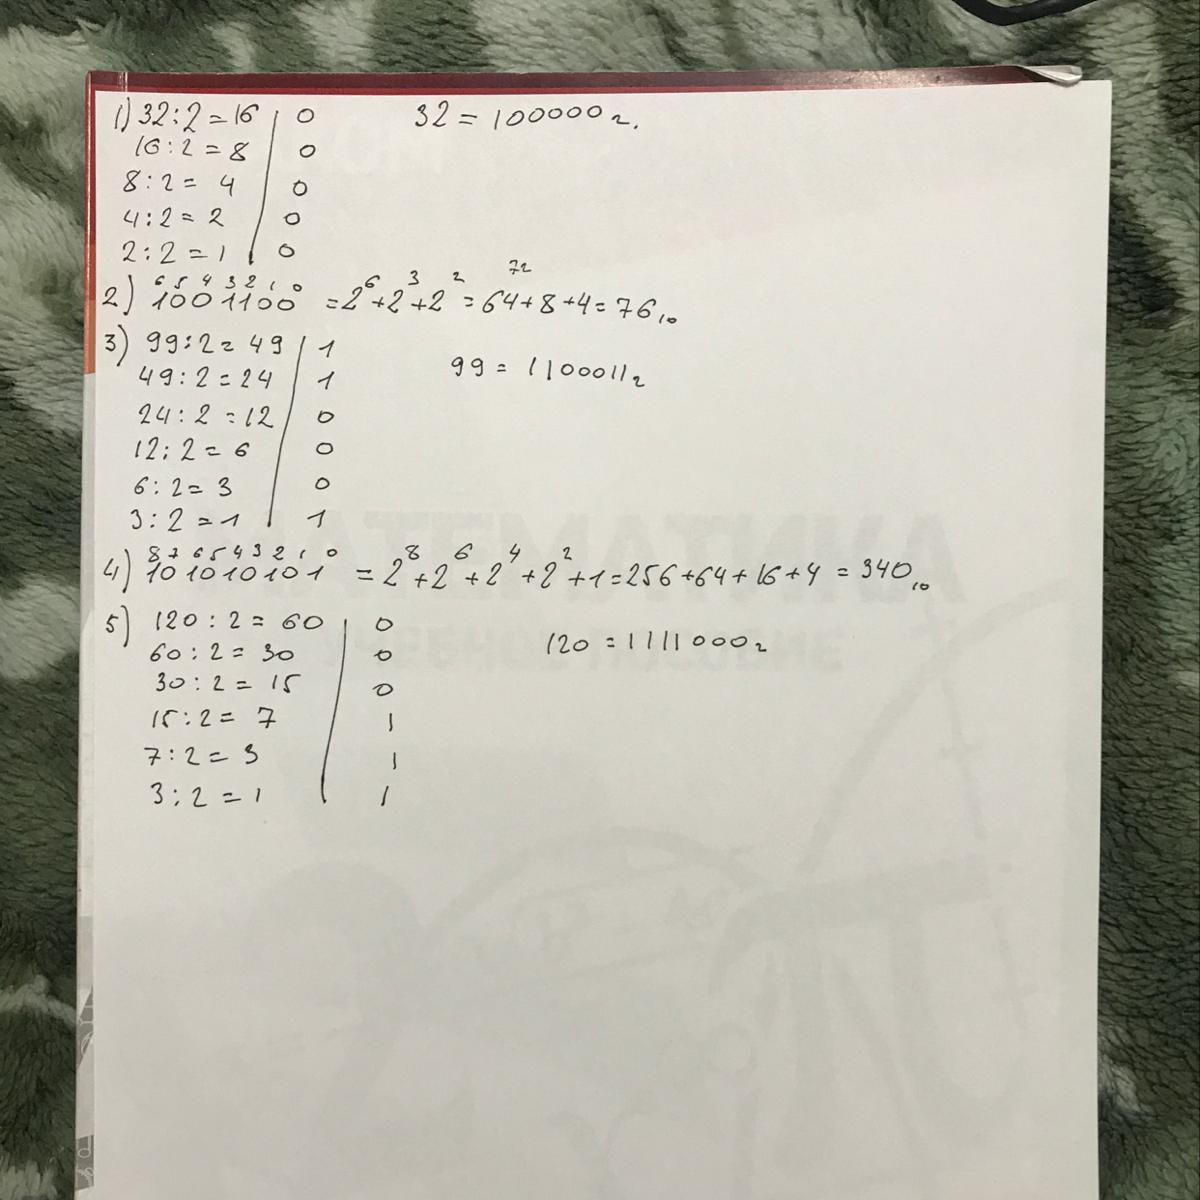 1) 32 : 2 = 16 | 0 32 = 100000₂.
16 : 2 = 8 | 0
8 : 2 = 4 | 0
4 : 2 = 2 | 0
2 : 2 = 1 | 0
72
6 5 4 3 2 1 0
2) 1001100 = 2⁶ + 2³ + 2² = 64 + 8 + 4 = 76₁₀
3) 99 : 2 = 49 | 1
49 : 2 = 24 | 1 99 = 1100011₂
24 : 2 = 12 | 0
12 : 2 = 6 | 0
6 : 2 = 3 | 0
3 : 2 = 1 | 1
МАТЕМАТИКА
8 7 6 5 4 3 2 1 0
4) 101010101 = 2⁸ + 2⁶ + 2⁴ + 2² + 1 = 256 + 64 + 16 + 4 = 340₁₀
5) 120 : 2 = 60 | 0 120 = 1111000₂
УЧЕБНОЕ ПОСОБИЕ
60 : 2 = 30 | 0
30 : 2 = 15 | 0
15 : 2 = 7 | 1
7 : 2 = 3 | 1
3 : 2 = 1 | 1